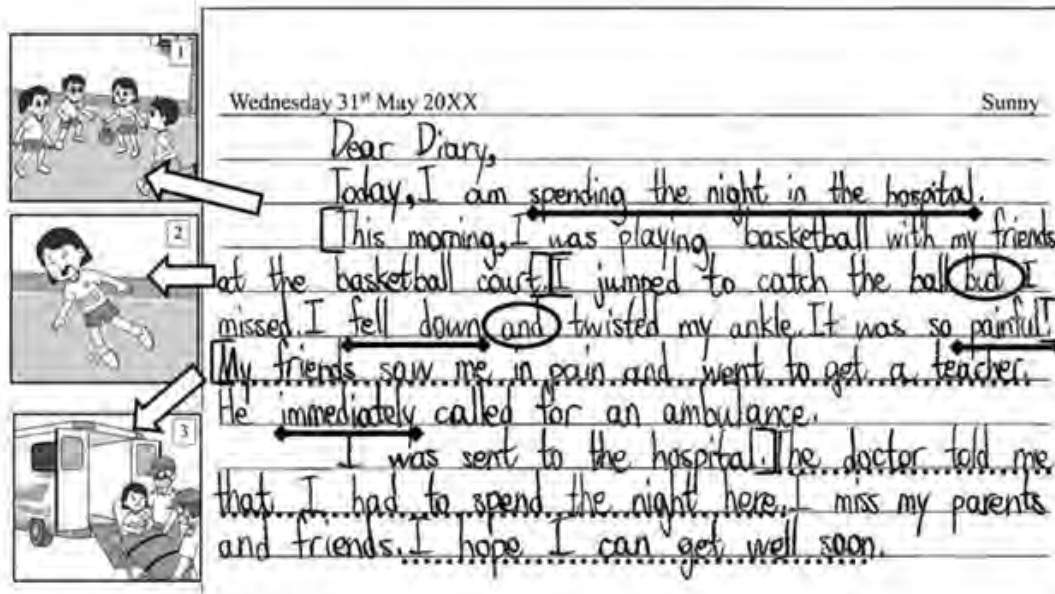 1
2
3
Wednesday 31st May 20XX Sunny
Dear Diary,
Today, I am spending the night in the hospital.
This morning, I was playing basketball with my friends
at the basketball court. I jumped to catch the ball but I
missed. I fell down and twisted my ankle. It was so painful.
My friends saw me in pain and went to get a teacher.
He immediately called for an ambulance.
I was sent to the hospital. The doctor told me
that I had to spend the night here. I miss my parents
and friends. I hope I can get well soon.